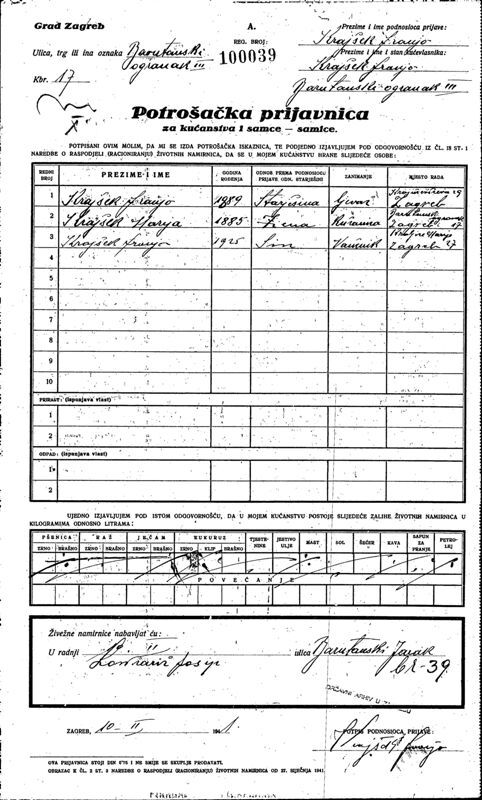 Grad Zagreb
A.
Prezime i ime podnosioca prijave:
Krajšek Franjo
Ulica, trg ili ina oznaka Barutanski
ogranak III
REG. BROJ:
100039
Prezime i ime i stan kućevlasnika:
Krajšek Franjo
Barutanski ogranak III
Kbr. 17
Potrošačka prijavnica
za kućanstva i samce — samice.
POTPISANI OVIM MOLIM, DA MI SE IZDA POTROŠAČKA ISKAZNICA, TE PODJEDNO IZJAVLJUJEM POD ODGOVORNOŠĆU IZ ČL. 15 ST. 1
NAREDBE O RASPODJELI (RACIONIRANJU) ŽIVOTNIH NAMIRNICA, DA SE U MOJEM KUĆANSTVU HRANE SLIJEDEĆE OSOBE:
REDNI BROJ PREZIME I IME GODINA ROĐENJA ODNOS PREMA PODNOSIOCU PRIJAVE ODN. STARJEŠINI ZANIMANJE MJESTO RADA
1 Krajšek Franjo 1889 Starješina Zagreb
2 Krajšek Marija 1885 Žena Zagreb 17
3 Krajšek Franjo 1925 Sin Zagreb 27
4
5
6
7
8
9
10
PRIRAST: (ispunjava vlast)
1
2
OTPAD: (ispunjava vlast)
1
2
UJEDNO IZJAVLJUJEM POD ISTOM ODGOVORNOŠĆU, DA U MOJEM KUĆANSTVU POSTOJE SLIJEDEĆE ZALIHE ŽIVOTNIH NAMIRNICA U
KILOGRAMIMA ODNOSNO LITRAMA:
PŠENICA RAŽ JEČAM KUKURUZ TJESTENINE JESTIVO ULJE MAST SOL ŠEĆER KAVA SAPUN ZA PRANJE PETROLEJ
ZRNO BRAŠNO ZRNO BRAŠNO ZRNO BRAŠNO ZRNO KLIP BRAŠNO
POVEĆANJE
Živežne namirnice nabavljat ću:
U radnji
Josip
ulica Barutanski Jarak
br - 39
ZAGREB, 10 - II 1941.
POTPIS PODNOSIOCA PRIJAVE:
Krajšek Franjo
OVA PRIJAVNICA STOJI DIN 0'75 I NE SMIJE SE SKUPLJE PRODAVATI.
OBRAZAC K ČL. 2 ST. 3 NAREDBE O RASPODJELI (RACIONIRANJU) ŽIVOTNIH NAMIRNICA OD 27. SIJEČNJA 1941.